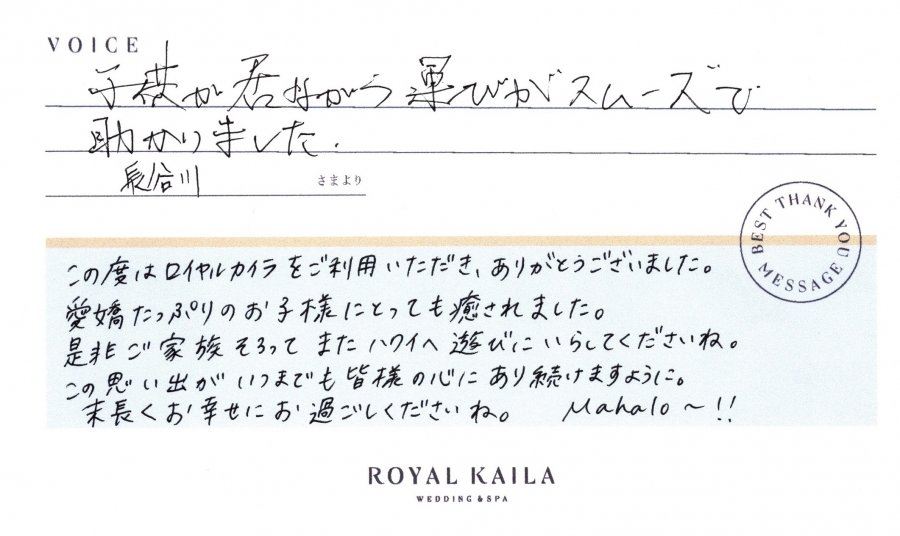 VOICE
子供が居ながら運びがスムーズで
助かりました.
長谷川 さまより
BEST THANK YOU MESSAGE
この度はロイヤルカイラをご利用いただき、ありがとうございました。
愛嬌たっぷりのお子様にとっても癒されました。
是非ご家族そろってまたハワイへ遊びにいらしてくださいね。
この思い出がいつまでも皆様の心にあり続けますように。
末長くお幸せにお過ごしくださいね。 Mahalo～!!
ROYAL KAILA
WEDDING & SPA